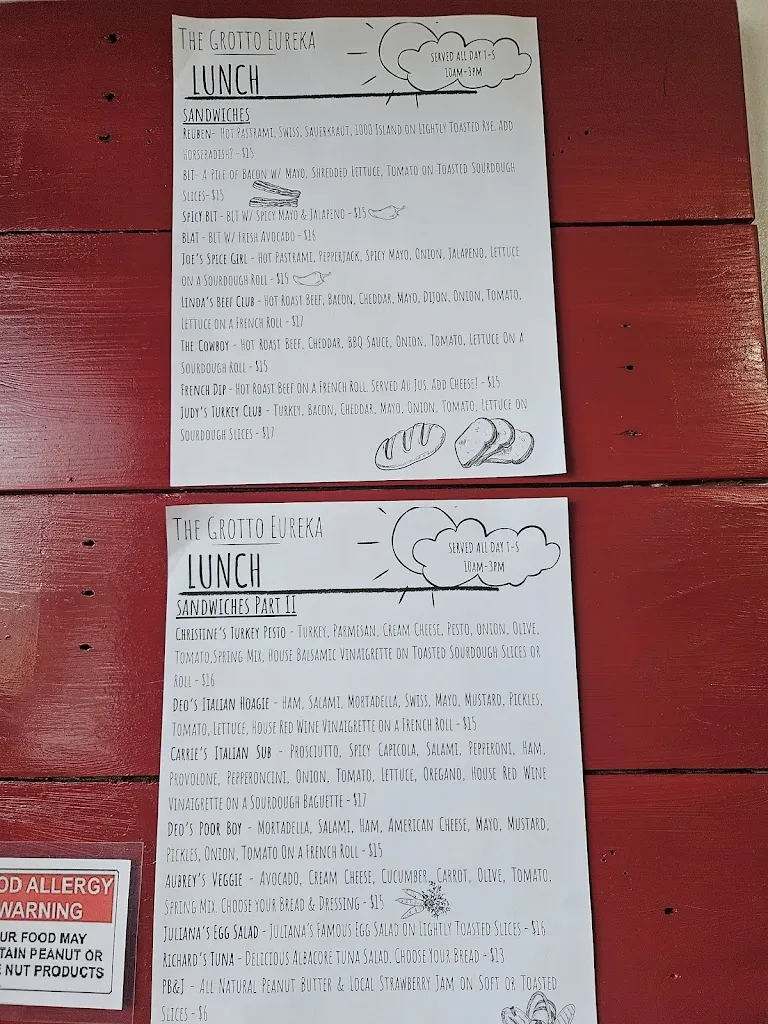 THE GROTTO EUREKA
LUNCH
SERVED ALL DAY T-S
10AM-3PM
SANDWICHES
REUBEN- HOT PASTRAMI, SWISS, SAUERKRAUT, 1000 ISLAND ON LIGHTLY TOASTED RYE. ADD
HORSERADISH? - $15
BLT- A PILE OF BACON W/ MAYO, SHREDDED LETTUCE, TOMATO ON TOASTED SOURDOUGH
SLICES- $15
SPICY BLT - BLT W/ SPICY MAYO & JALAPENO - $15
BLAT - BLT W/ FRESH AVOCADO - $16
JOE'S SPICE GIRL - HOT PASTRAMI, PEPPERJACK, SPICY MAYO, ONION, JALAPENO, LETTUCE
ON A SOURDOUGH ROLL - $15
LINDA'S BEEF CLUB - HOT ROAST BEEF, BACON, CHEDDAR, MAYO, DIJON, ONION, TOMATO,
LETTUCE ON A FRENCH ROLL - $17
THE COWBOY - HOT ROAST BEEF, CHEDDAR, BBQ SAUCE, ONION, TOMATO, LETTUCE ON A
SOURDOUGH ROLL - $15
FRENCH DIP - HOT ROAST BEEF ON A FRENCH ROLL. SERVED AU JUS. ADD CHEESE! - $15
JUDY'S TURKEY CLUB - TURKEY, BACON, CHEDDAR, MAYO, ONION, TOMATO, LETTUCE ON
SOURDOUGH SLICES - $17
THE GROTTO EUREKA
LUNCH
SERVED ALL DAY T-S
10AM-3PM
SANDWICHES PART II
CHRISTINE'S TURKEY PESTO - TURKEY, PARMESAN, CREAM CHEESE, PESTO, ONION, OLIVE,
TOMATO,SPRING MIX, HOUSE BALSAMIC VINAIGRETTE ON TOASTED SOURDOUGH SLICES OR
ROLL - $16
DEO'S ITALIAN HOAGIE - HAM, SALAMI, MORTADELLA, SWISS, MAYO, MUSTARD, PICKLES,
TOMATO, LETTUCE, HOUSE RED WINE VINAIGRETTE ON A FRENCH ROLL - $15
CARRIE'S ITALIAN SUB - PROSCIUTTO, SPICY CAPICOLA, SALAMI, PEPPERONI, HAM,
PROVOLONE, PEPPERONCINI, ONION, TOMATO, LETTUCE, OREGANO, HOUSE RED WINE
VINAIGRETTE ON A SOURDOUGH BAGUETTE - $17
DEO'S POOR BOY - MORTADELLA, SALAMI, HAM, AMERICAN CHEESE, MAYO, MUSTARD,
PICKLES, ONION, TOMATO ON A FRENCH ROLL - $15
AUBREY'S VEGGIE - AVOCADO, CREAM CHEESE, CUCUMBER, CARROT, OLIVE, TOMATO,
SPRING MIX. CHOOSE YOUR BREAD & DRESSING - $15
JULIANA'S EGG SALAD - JULIANA'S FAMOUS EGG SALAD ON LIGHTLY TOASTED SLICES - $16
RICHARD'S TUNA - DELICIOUS ALBACORE TUNA SALAD. CHOOSE YOUR BREAD - $13
PB&J - ALL NATURAL PEANUT BUTTER & LOCAL STRAWBERRY JAM ON SOFT OR TOASTED
SLICES - $6
OD ALLERGY
WARNING
UR FOOD MAY
TAIN PEANUT OR
NUT PRODUCTS